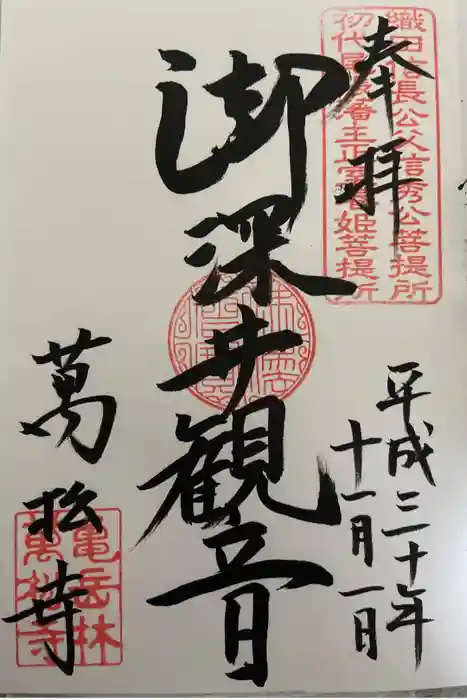 奉拝
織田信長公父信秀公菩提所
初代尾張藩主正室春姫菩提所
平成三十年
十一月一日
御深井観音
萬松寺
亀岳林
萬松寺